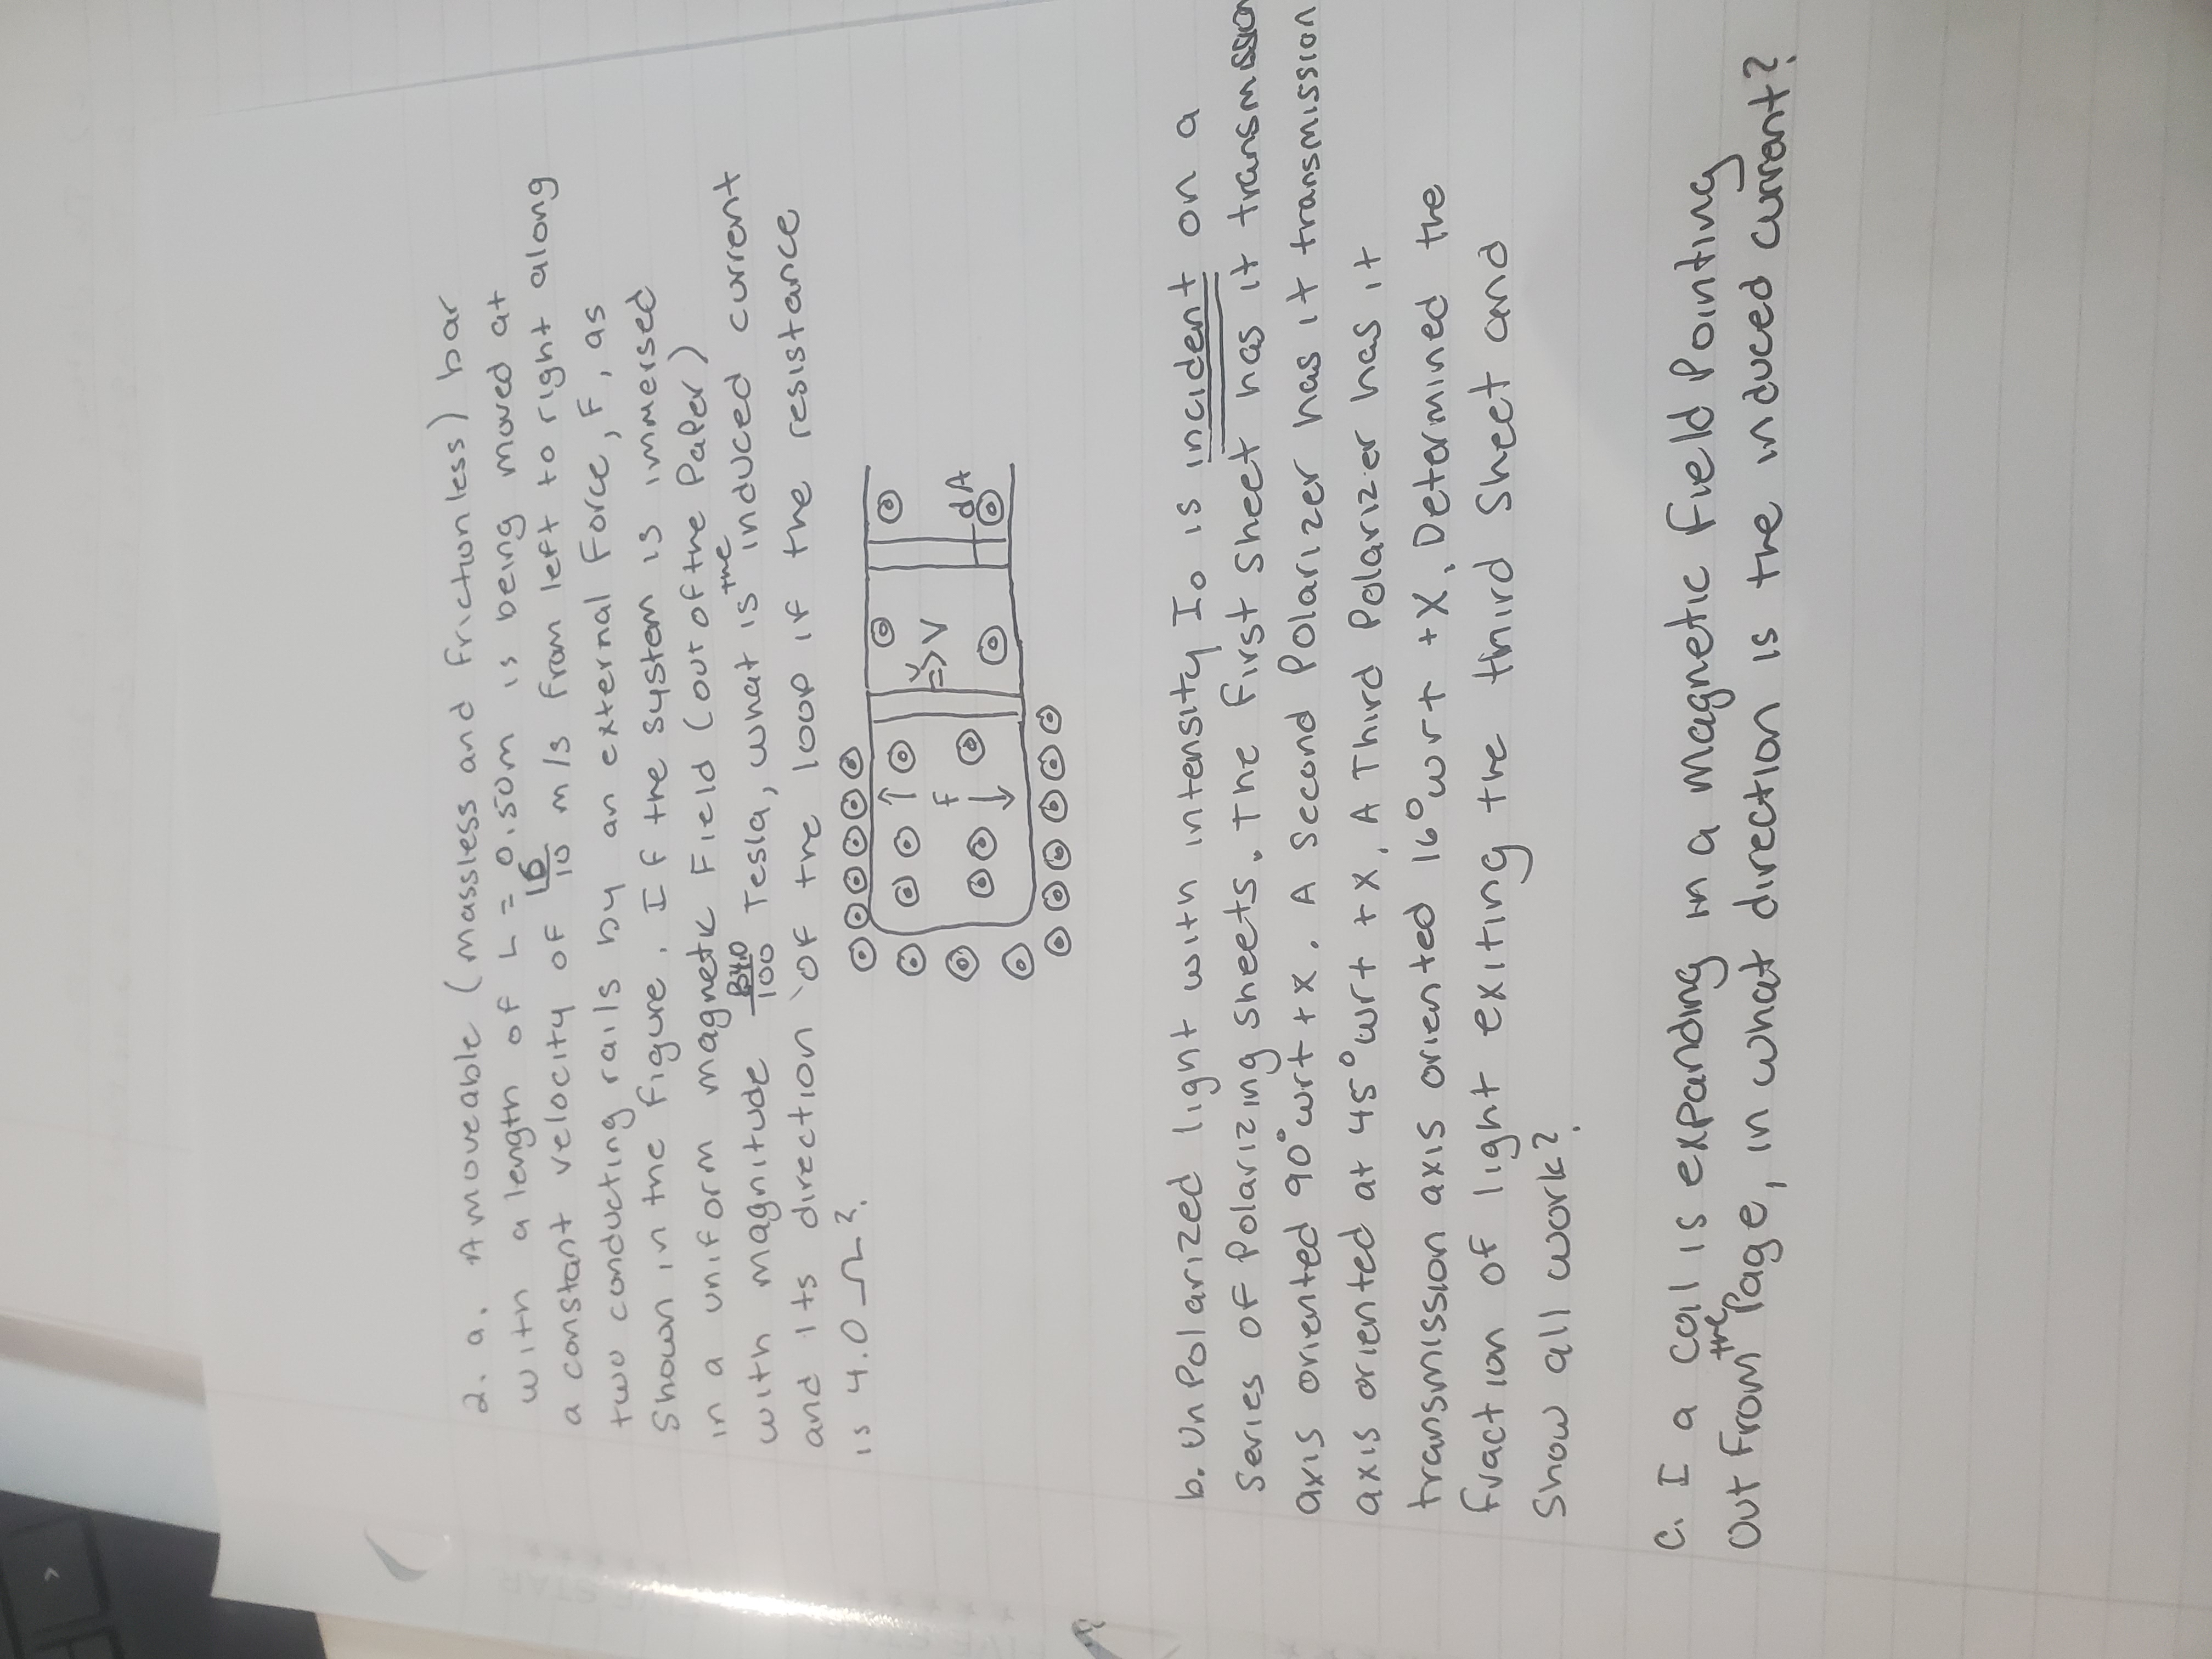 2. a. A moveable (massless and frictionless) bar
with a length of L = 0.50m is being moved at
a constant velocity of /10 m/s from left to right along
two conducting rails by an external Force, F, as
Shown in the figure. If the system is immersed
in a uniform magnetic Field (out of the Paper)
with magnitude /100 Tesla, what is the induced current
and its direction of the loop if the resistance
is 4.0 Ω?
f
=> V
dA
b. Un Polarized light with intensity I₀ is incident on a
Series of Polarizing sheets. The first sheet has it transmission
axis oriented 90° wrt +x. A Second Polarizer has it transmission
axis oriented at 45° wrt +x. A Third Polarizer has it
transmission axis oriented 16° wrt +X. Determined the
fraction of light exiting the third Sheet and
Show all work?
C. I a coil is expanding in a magnetic field Pointing
Out From the Page, in what direction is the induced current?